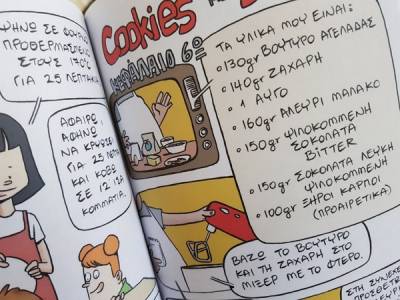 ΨΗΝΩ ΣΕ
ΠΡΟΘΕΡΜΑΣΜΕΝΟ
ΣΤΟΥΣ 170°C
ΓΙΑ 25 ΛΕΠΤΑ
ΑΦΑΙΡΩ,
ΑΦΗΝΩ
ΝΑ ΚΡΥΩΣΕΙ
ΓΙΑ 25 ΛΕΠΤΑ
ΚΑΙ ΚΟΒΩ
ΣΕ 12 ΙΣΑ
ΚΟΜΜΑΤΙΑ.
Cookies
ΚΕΦΑΛΑΙΟ 6ο
ΤΑ ΥΛΙΚΑ ΜΟΥ ΕΙΝΑΙ:
130gr ΒΟΥΤΥΡΟ ΑΓΕΛΑΔΑΣ
140gr ΖΑΧΑΡΗ
1 ΑΥΓΟ
160gr ΑΛΕΥΡΙ ΜΑΛΑΚΟ
150gr ΨΙΛΟΚΟΜΜΕΝΗ
ΣΟΚΟΛΑΤΑ
BITTER
150gr ΣΟΚΟΛΑΤΑ ΛΕΥΚΗ
ΨΙΛΟΚΟΜΜΕΝΗ
100gr ΞΗΡΟΙ ΚΑΡΠΟΙ
(ΠΡΟΑΙΡΕΤΙΚΑ)
ΒΑΖΩ ΤΟ ΒΟΥΤΥΡΟ
ΚΑΙ ΤΗ ΖΑΧΑΡΗ ΣΤΟ
ΜΙΞΕΡ ΜΕ ΤΟ ΦΤΕΡΟ.
ΣΤΗ ΣΥΝΕΧΕΙΑ